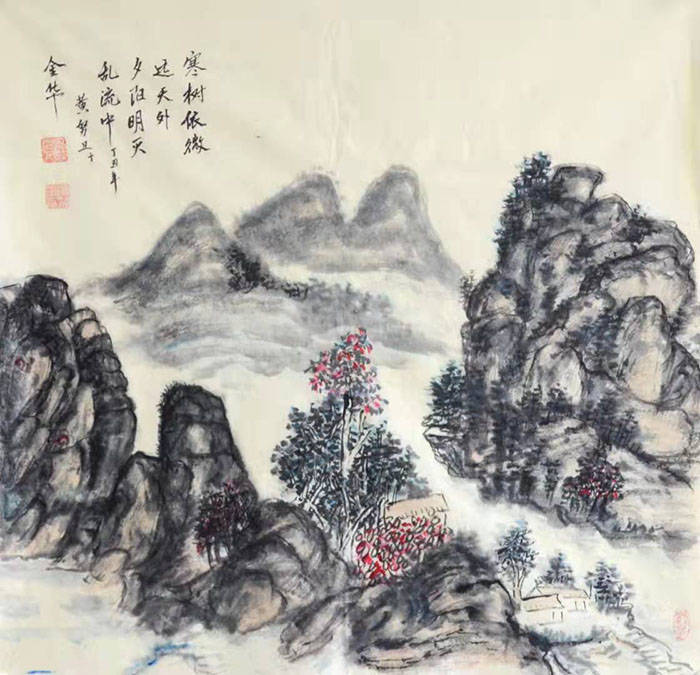 寒树依微
远天外
夕阳明灭
乱流中 丁丑年
黄
金华